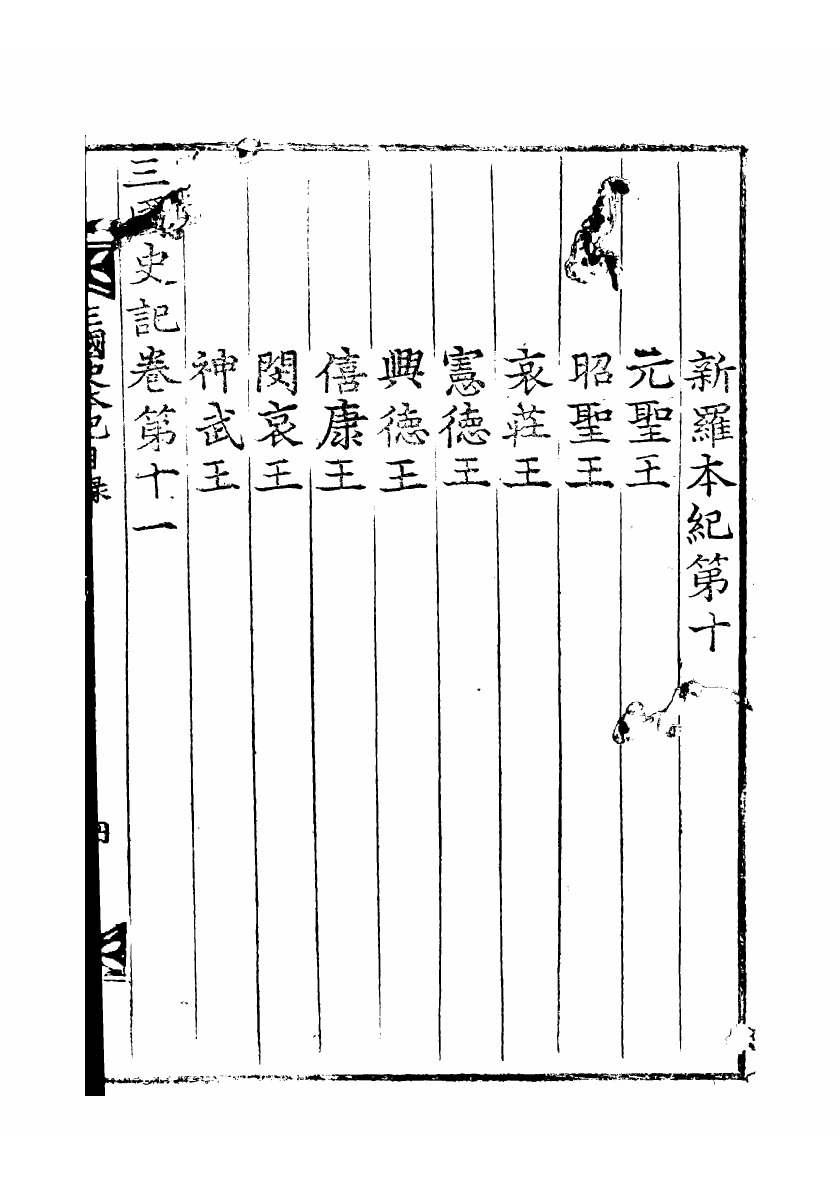 新羅本紀第十
元聖王
昭聖王
哀莊王
憲德王
興德王
僖康王
閔哀王
神武王
三國史記卷第十一
三國史本紀目録